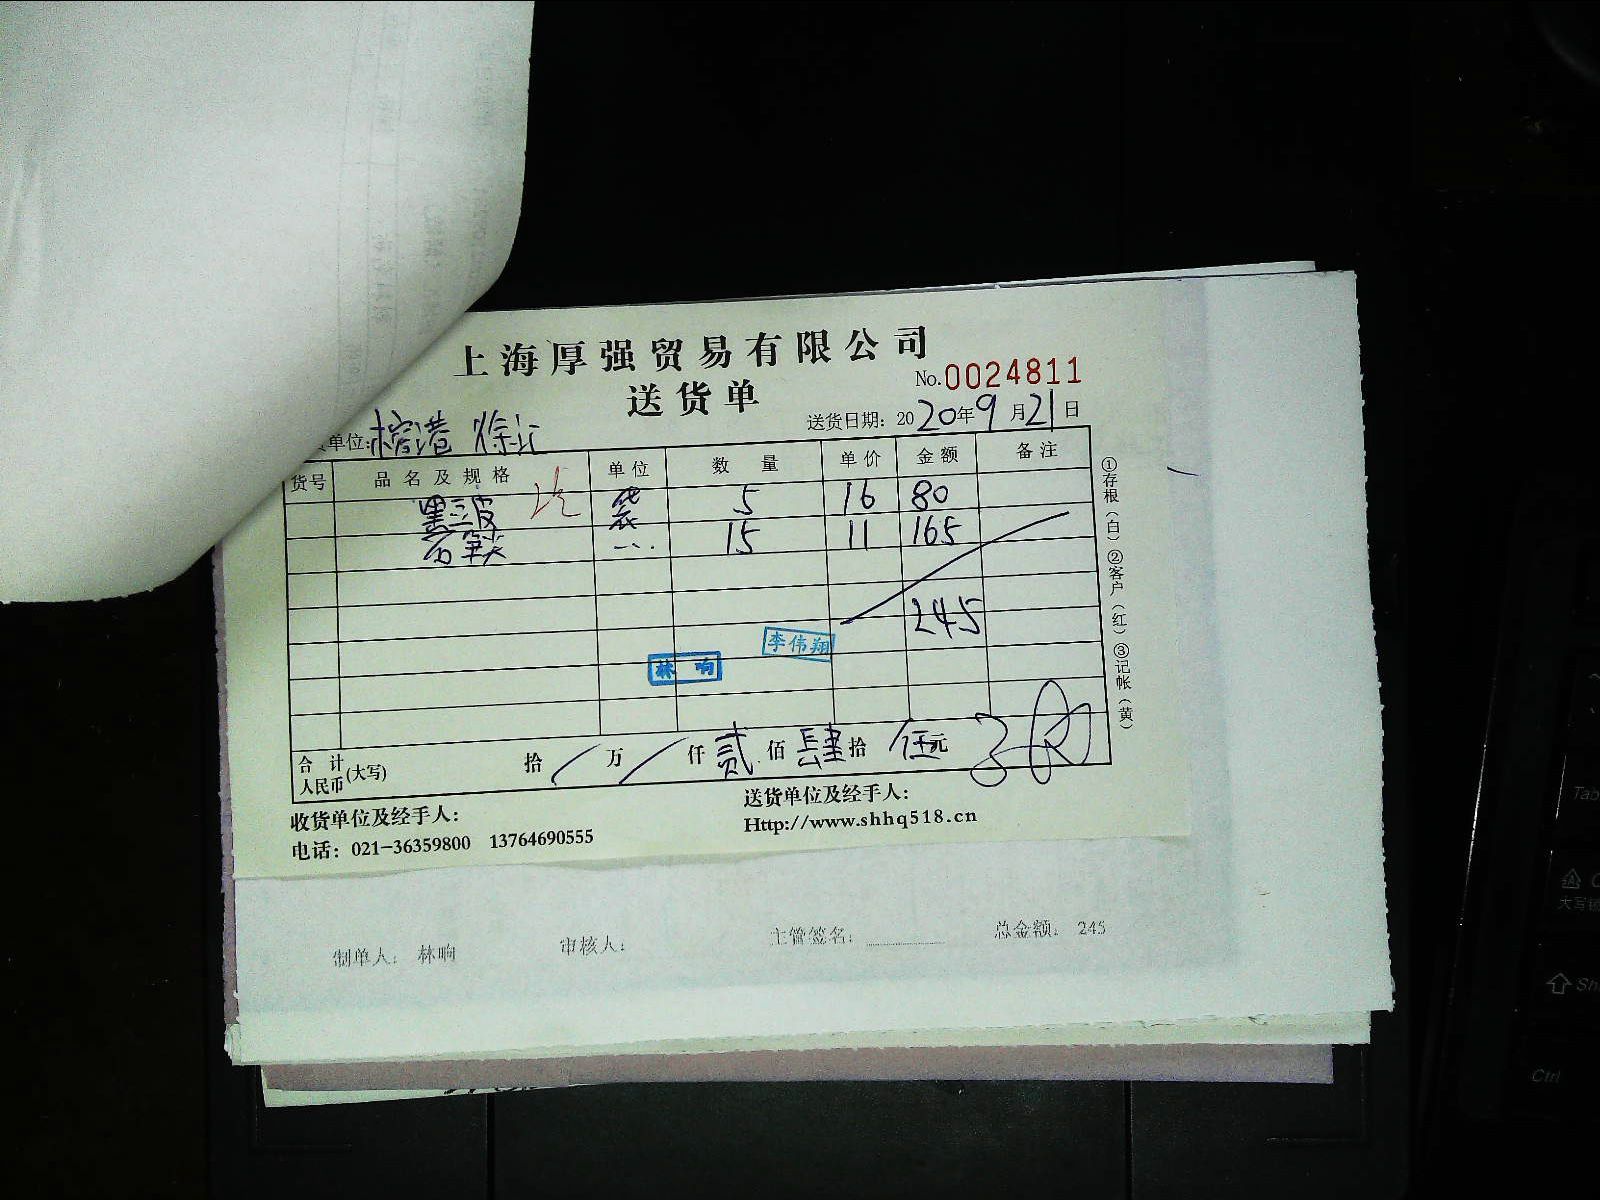 上海厚强贸易有限公司
送货单
No.0024811
送货日期：2020年9月21日
单位：
货号 品名及规格 单位 数量 单价 金额 备注
黑三皮 袋 5 16 80
石笋尖 15 11 165
245
李伟翔
林响
合计人民币(大写) 拾 / 万 / 仟 贰 佰 肆 拾 伍 元
收货单位及经手人：
送货单位及经手人：
电话：021-36359800 13764690555
Http://www.shhq518.cn
①存根（白）②客户（红）③记帐（黄）
制单人： 林响 审核人： 主管签名： 总金额： 245
Tab
大写锁
Sh
Ctrl